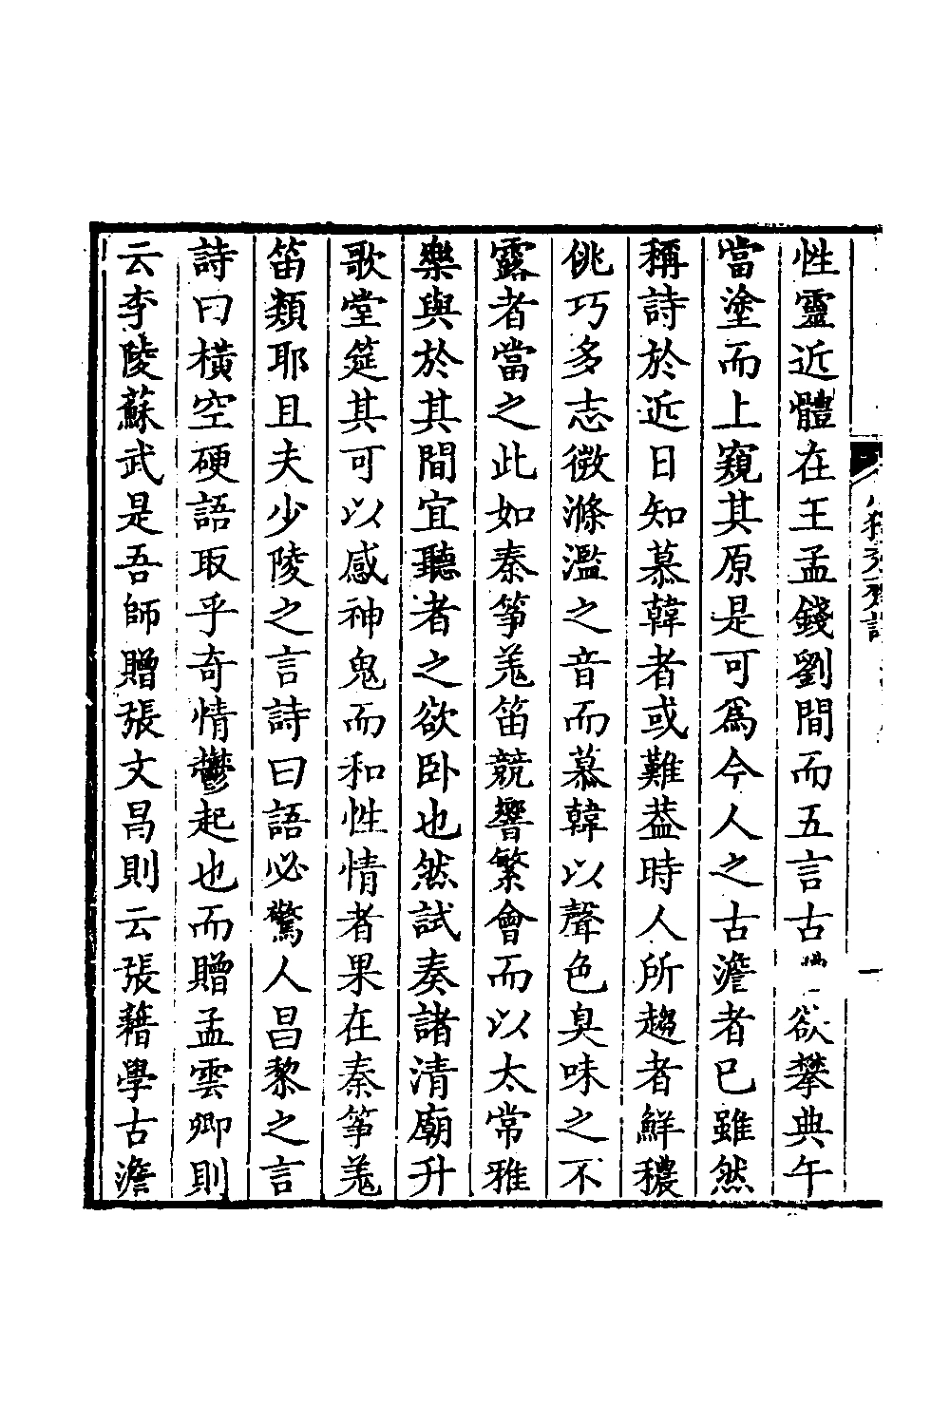 性靈近體在王孟錢劉間而五言古欲攀典午
當塗而上窺其原是可爲今人之古澹者已雖然
稱詩於近日知慕韓者或難葢時人所趨者鮮穠
佻巧多志微滌濫之音而慕韓以聲色臭味之不
露者當之此如秦箏羗笛競響繁會而以太常雅
樂與於其間宜聽者之欲卧也然試奏諸清廟升
歌堂筵其可以感神鬼而和性情者果在秦箏羗
笛類耶且夫少陵之言詩曰語必驚人昌黎之言
詩曰橫空硬語取乎奇情鬱起也而贈孟雲卿則
云李陵蘇武是吾師贈張文昌則云張籍學古澹